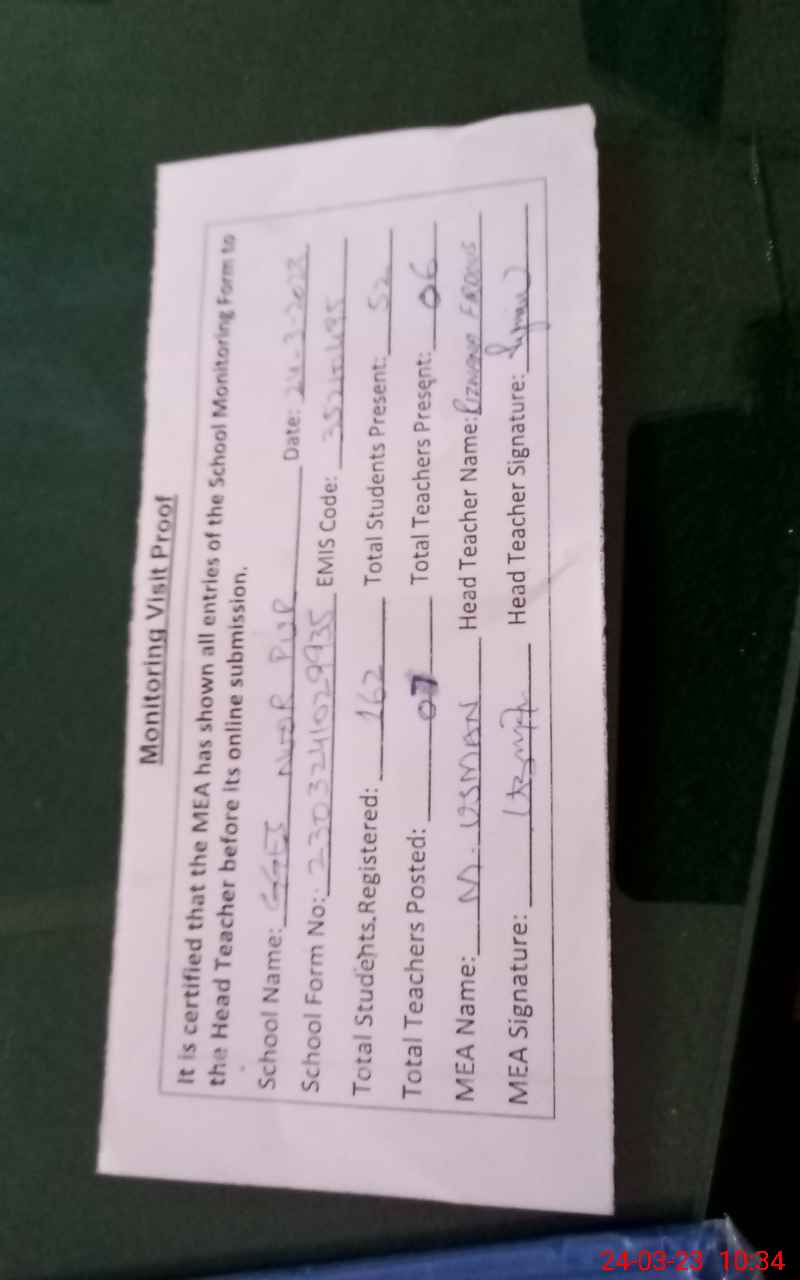 Monitoring Visit Proof
It is certified that the MEA has shown all entries of the School Monitoring Form to
the Head Teacher before its online submission.
School Name: GGES NOOR PUR Date: 24-3-2023
School Form No: 2303241029935 EMIS Code:
Total Students Registered: 162 Total Students Present: 52
Total Teachers Posted: 07 Total Teachers Present: 06
MEA Name: M. USMAN Head Teacher Name: Rizwana
MEA Signature: Head Teacher Signature:
24-03-23 10:34